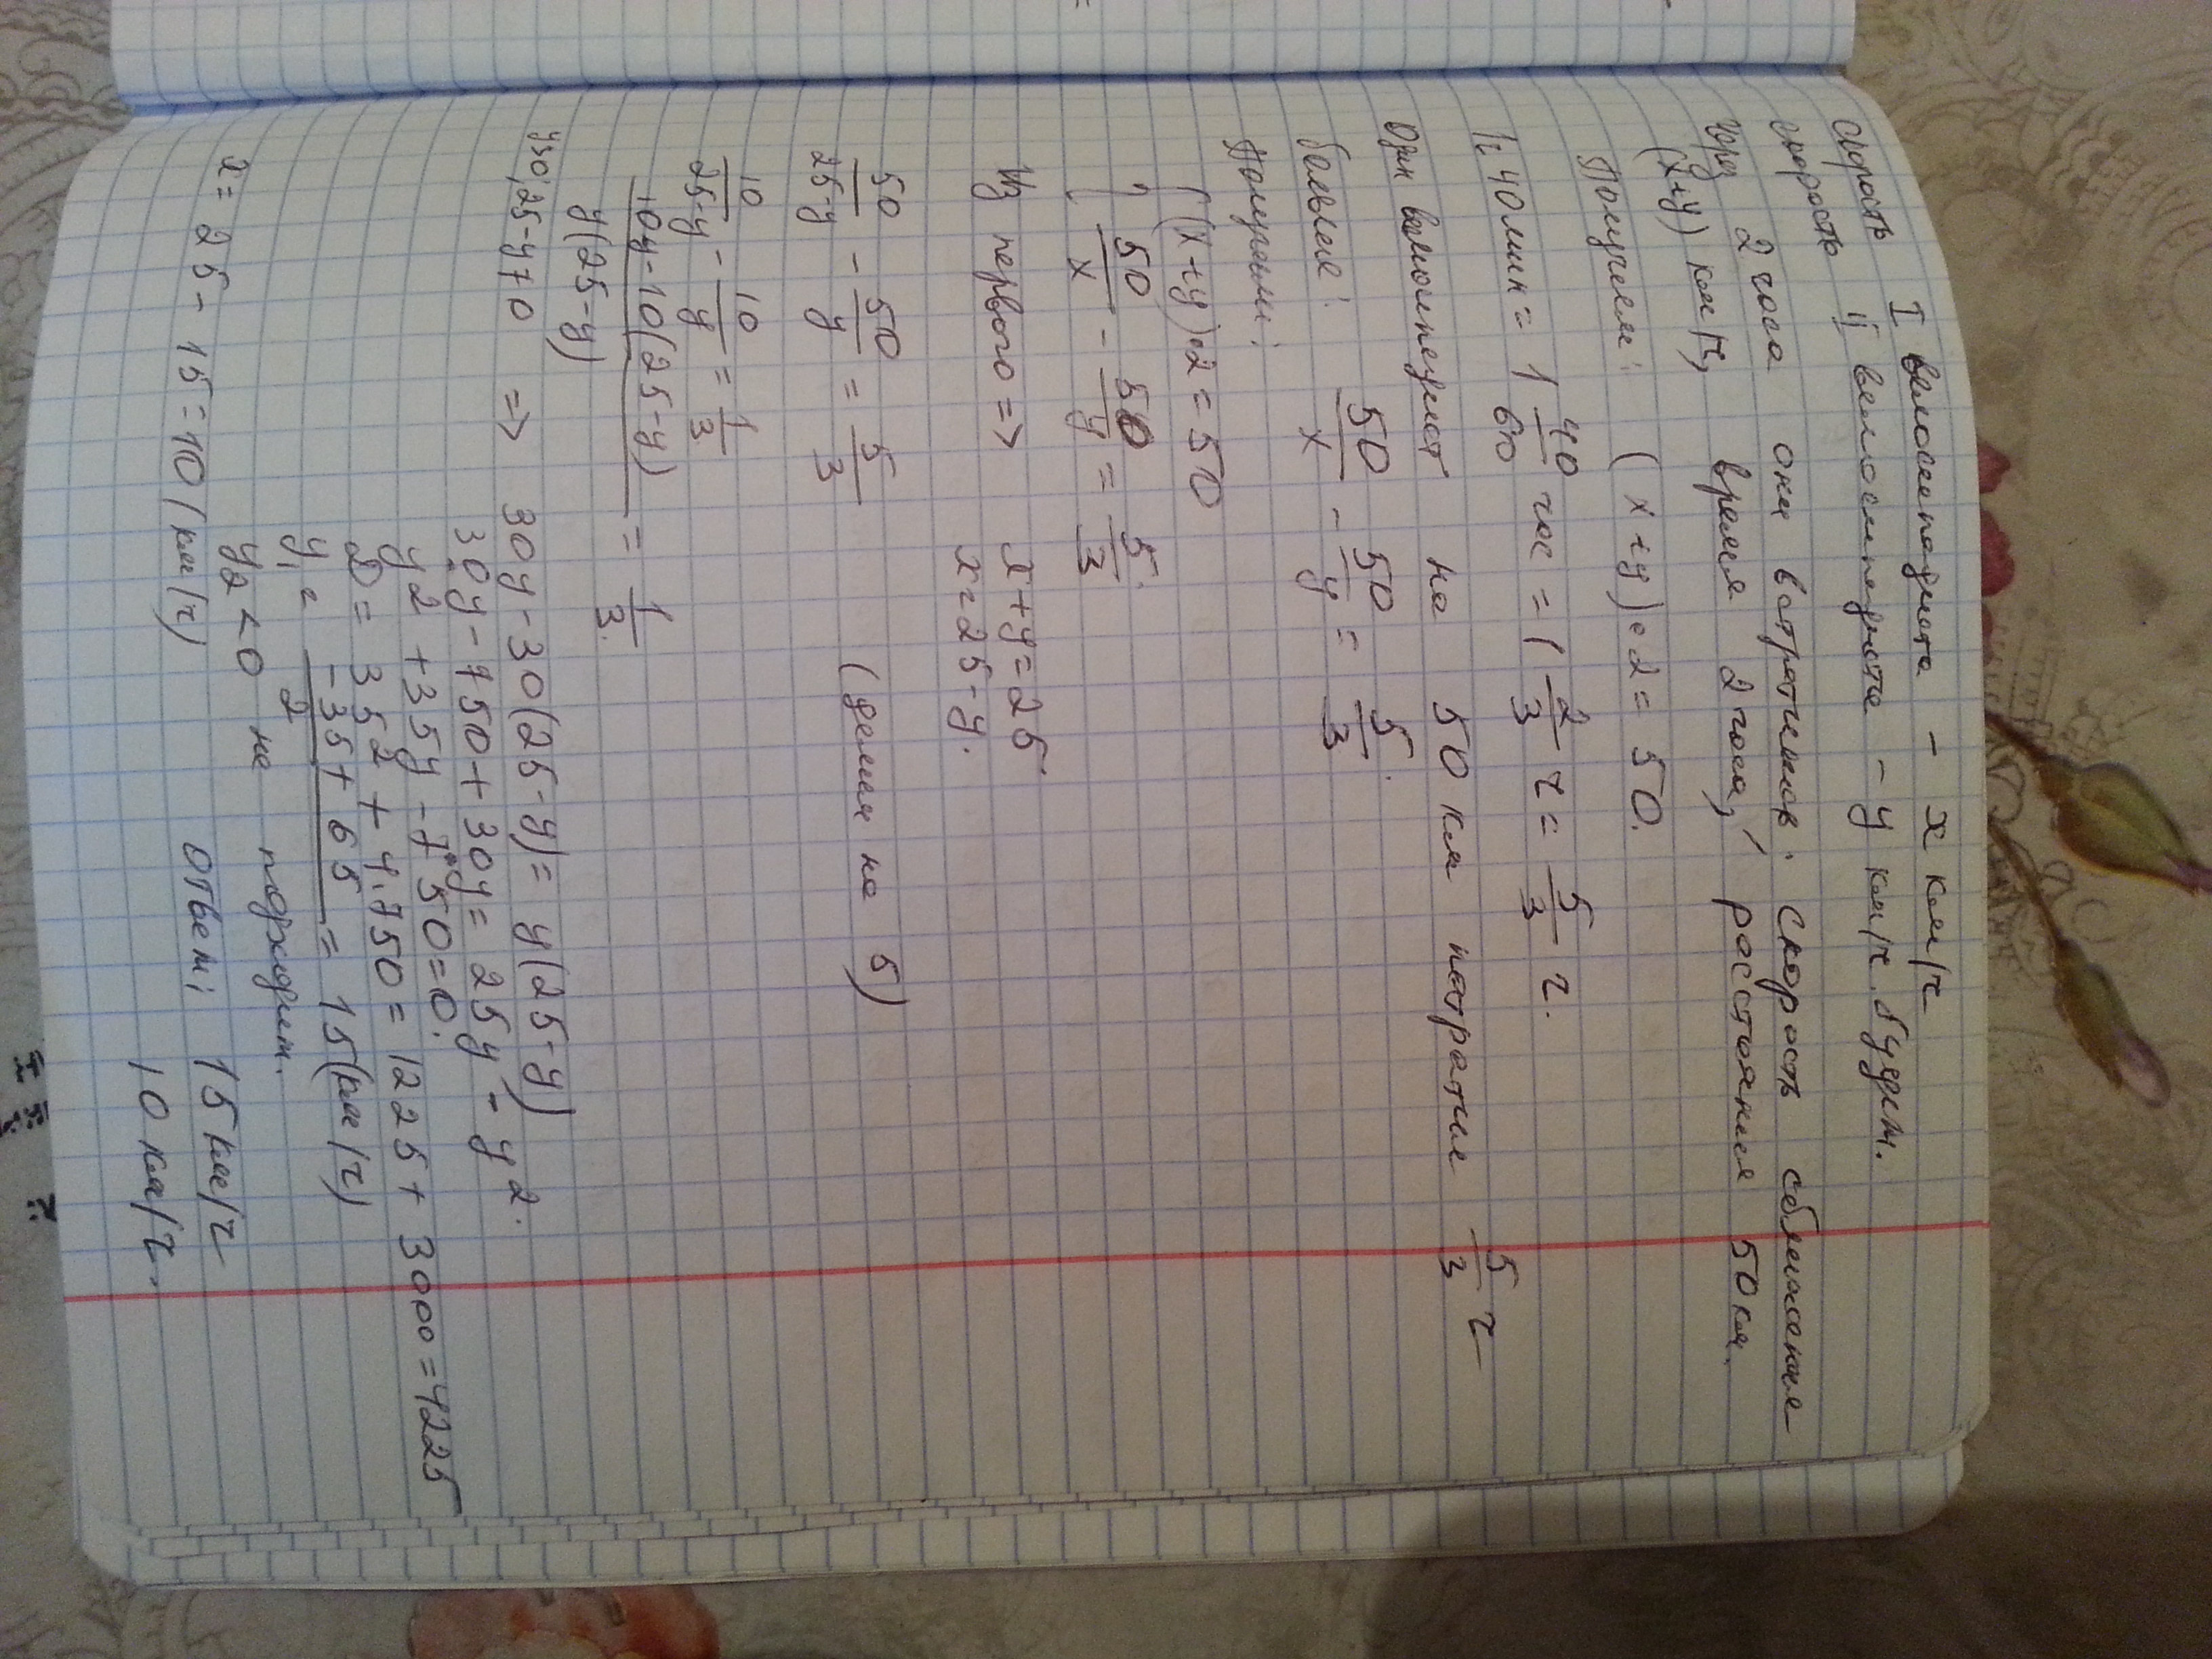 скорость I велосипедиста - x км/ч
скорость II велосипедиста - y км/ч. Будет.
Через 2 часа они встретились. Скорость сближения
(x+y) км/ч, время 2 часа, расстояния 50 км.
Получаем: (x+y)·2 = 50.
1ч 40мин = 1 40/60 час = 1 2/3 ч = 5/3 ч.
Один велосипедист на 50 км потратил 5/3 ч
больше: 50/x - 50/y = 5/3.
Получаем:
{ (x+y)·2 = 50
{ 50/x - 50/y = 5/3.
Из первого => x+y=25
x=25-y.
50/25-y - 50/y = 5/3 (делим на 5)
10/25-y - 10/y = 1/3
10y-10(25-y)/y(25-y) = 1/3.
y≠0, 25-y≠0 => 30y-30(25-y)= y(25-y)
30y-750+30y= 25y - y2.
y2 +35y -750=0.
D= 352 + 4·750= 1225+ 3000=4225
y1= -35+65/2 = 15(км/ч)
y2<0 не подходит.
x= 25-15=10(км/ч)
Ответ: 15 км/ч
10 км/ч.